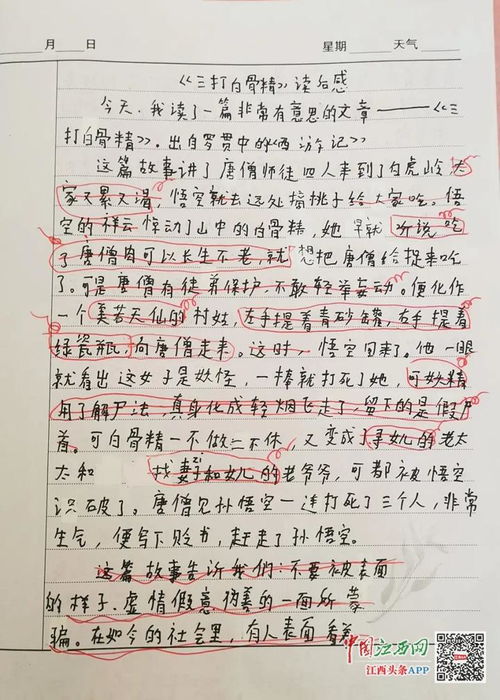 月 日 星期 天气
《三打白骨精》读后感
今天，我读了一篇非常有意思的文章——《三
打白骨精》，出自罗贯中的《西游记》
这篇故事讲了唐僧师徒四人来到了白虎岭，大
家又累又渴，悟空就去远处摘桃子给大家吃。悟
空的祥云惊动了山中的白骨精，她早就听说吃
了唐僧肉可以长生不老，就想把唐僧给捉来吃
了。可是唐僧有徒弟保护，不敢轻举妄动。便化作
一个美若天仙的村姑，左手提着青砂罐，右手提着
绿瓷瓶，向唐僧走来。这时，悟空回来了。他一眼
就看出这女子是妖怪，一棒就打死了她，可妖精
用了解尸法，真身化成轻烟飞走了，留下的是假尸
首。可白骨精一不做二不休，又变成了寻女儿的老太
太和 找妻子和女儿的老爷爷，可都被悟空
识破了。唐僧见孙悟空一连打死了三个人，非常
生气，便写下贬书，赶走了孙悟空。
这篇故事告诉我们：不要被表面
的样子、虚情假意、伪善的一面所蒙
骗。在如今的社会里，有人表面看着
中国江西网
江西头条APP